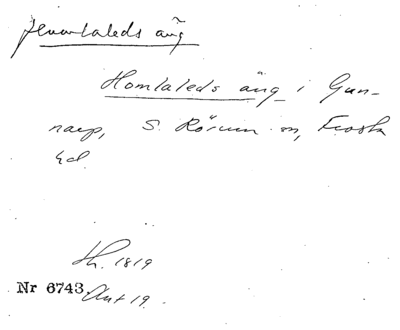 Homlaleds äng
Homlaleds äng i Gun-
narp, S. Rörum sn, Frosta
hd
Th. 1819
Nr 6743. Akt 19.